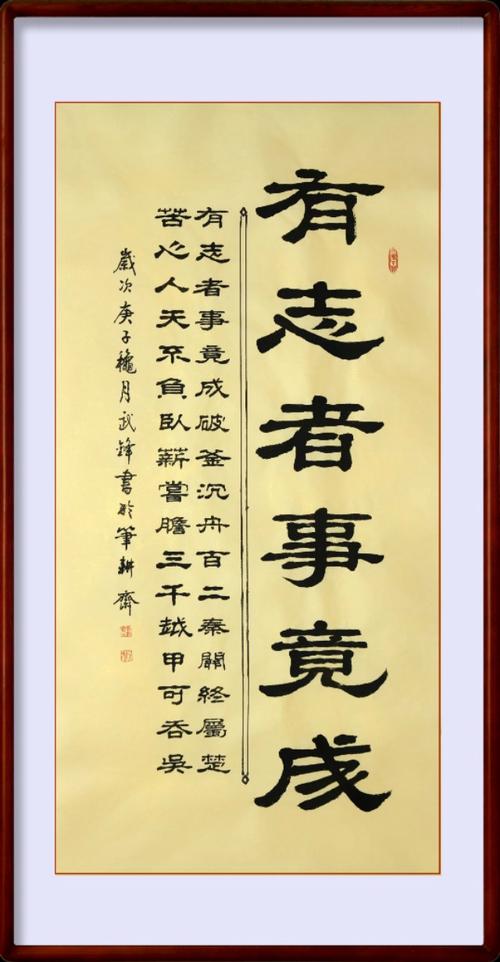 有志者事竟成
有志者事竟成破釜沉舟百二秦關終屬楚
苦心人天不負臥薪嘗膽三千越甲可吞吳
歲次庚子穐月武鋒書於筆耕齋